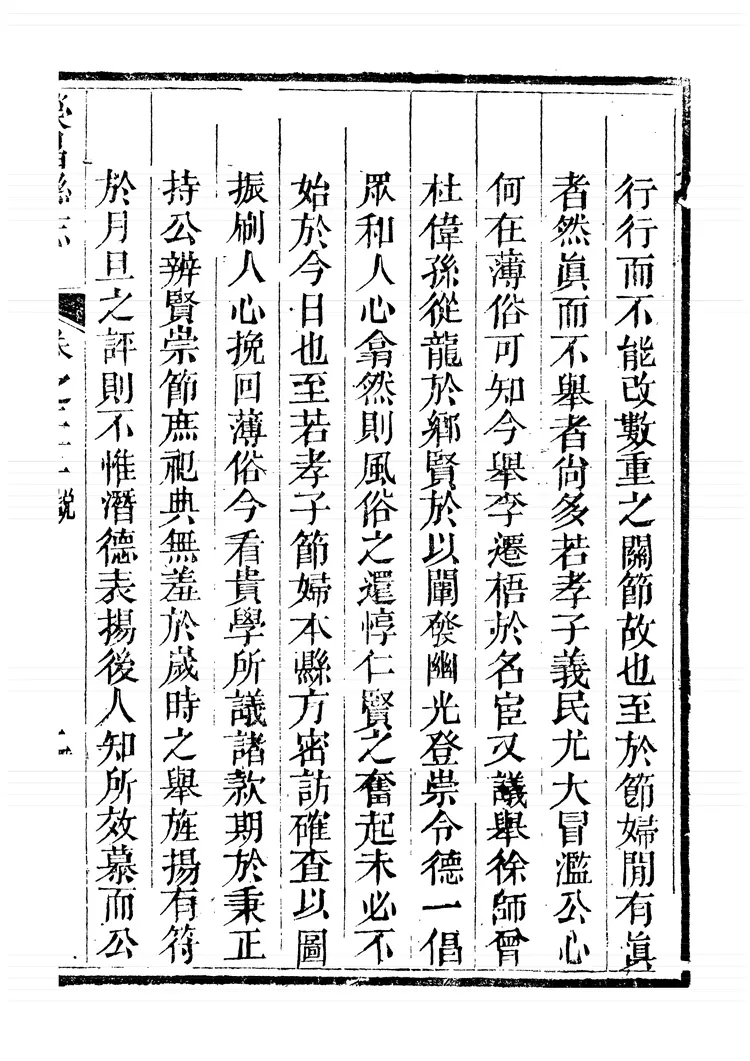 行行而不能改數重之關節故也至於節婦閒有眞
者然眞而不舉者尙多若孝子義民尤大冒濫公心
何在薄俗可知今舉李遷梧於名宦又議舉徐師曾
杜偉孫從龍於鄉賢於以闡發幽光登崇令德一倡
眾和人心翕然則風俗之還惇仁賢之奮起未必不
始於今日也至若孝子節婦本縣方密訪確查以圖
振刷人心挽回薄俗今看貴學所議諸款期於秉正
持公辨賢崇節庶祀典無羞於歲時之舉旌揚有符
於月旦之評則不惟潛德表揚後人知所效慕而公
縣志 卷之 說